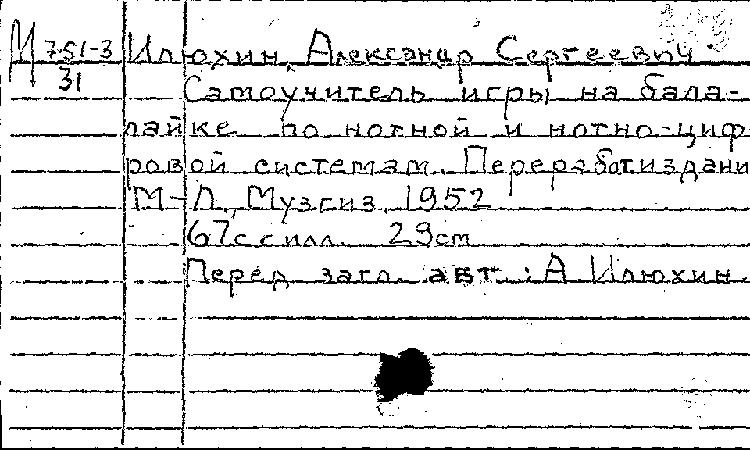 М 751-3 Илюхин, Александр Сергеевич
31 Самоучитель игры на бала-
лайке по нотной и нотно-циф-
ровой системам. Переработ издани
М-Л., Музгиз, 1952
67с с илл. 29см
Перед загл. авт.: А Илюхин.